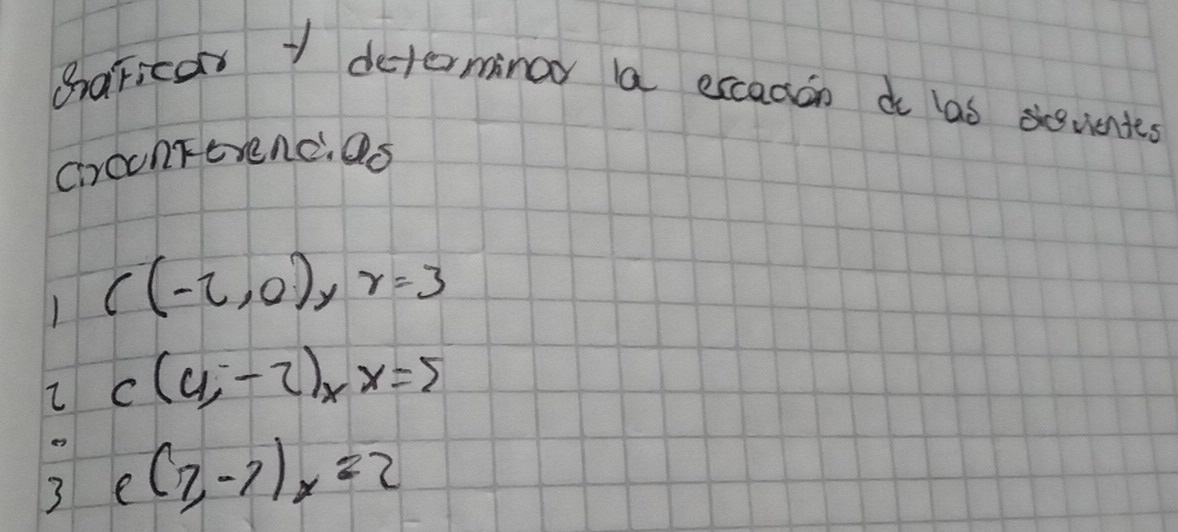 Graficar y determinar la escación de las siguientes
circunferencias
1 C(-2,0)y r=3
2 c(4,-2)y x=5
3 c(2,-2)y =2